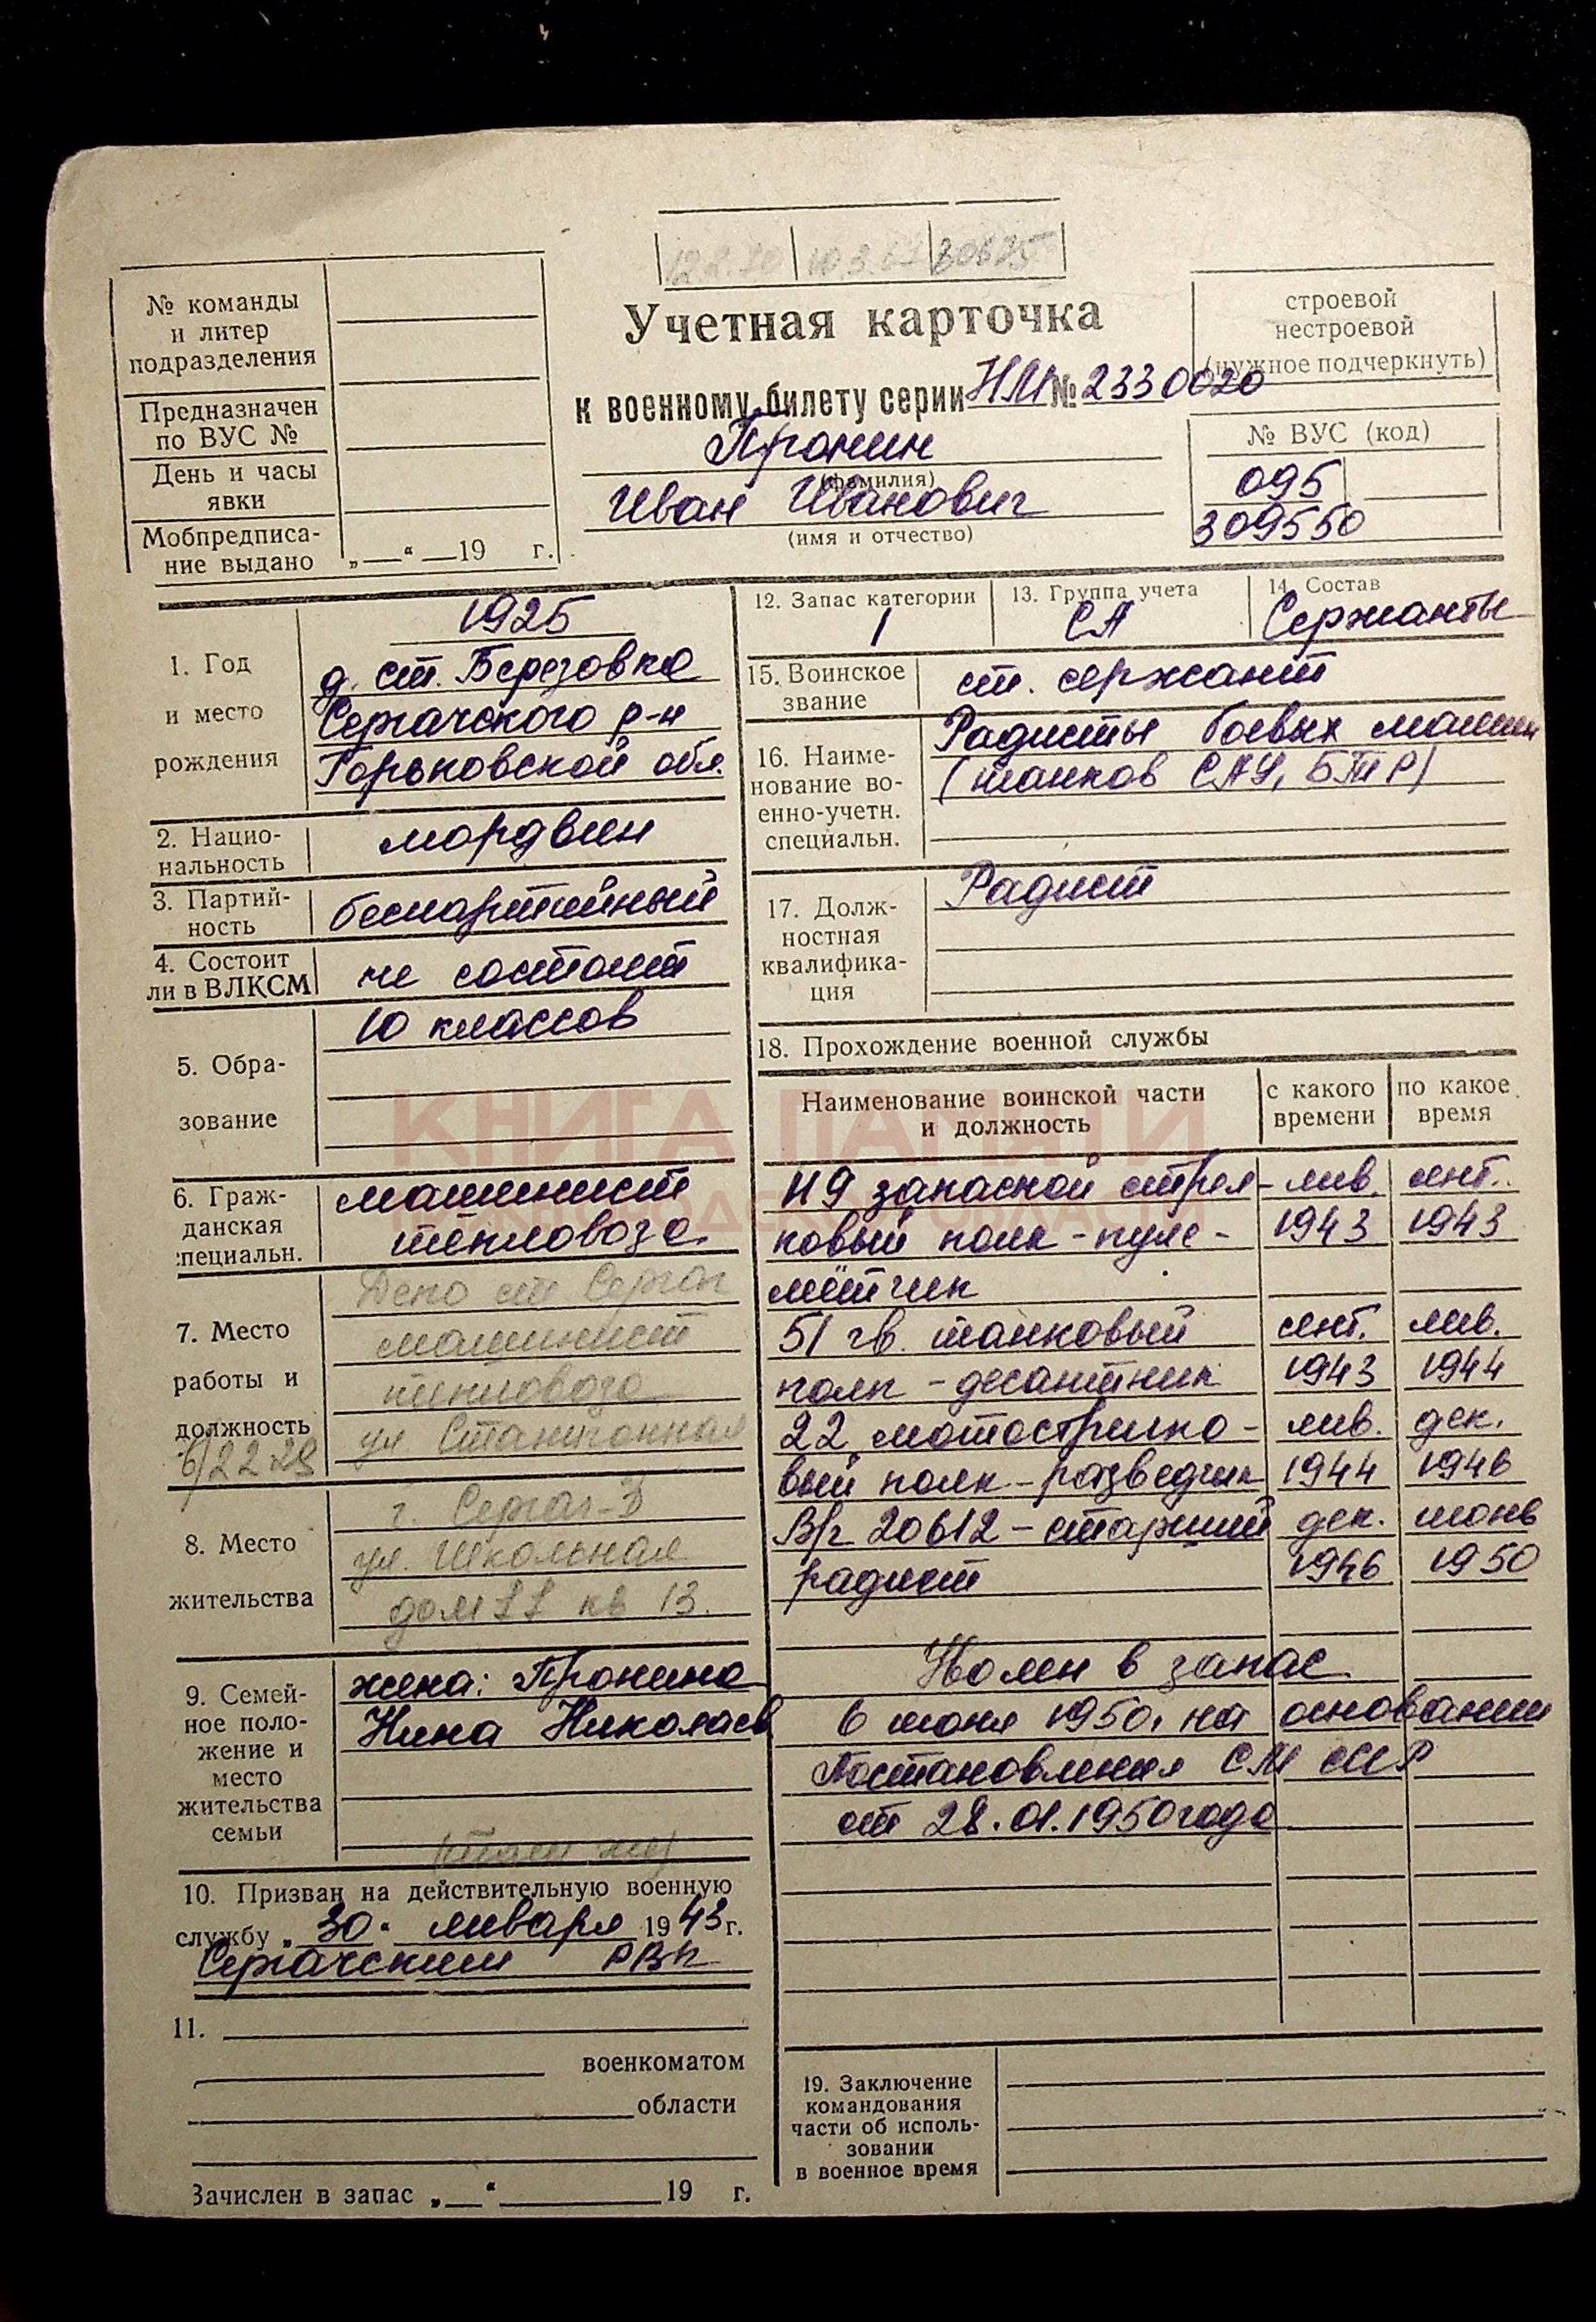 30675
Учетная карточка
к военному билету серии НМ № 2330020
Пронин
(фамилия)
Иван Иванович
(имя и отчество)
№ команды
и литер
подразделения
Предназначен
по ВУС №
День и часы
явки
Мобпредписа-
ние выдано „ “ 19 г.
строевой
нестроевой
(нужное подчеркнуть)
№ ВУС (код)
095
309550
1. Год
и место
рождения
1925
д. ст. Березовка
Сергачского р-н
Горьковской обл.
2. Нацио-
нальность
мордвин
3. Партий-
ность
беспартийный
4. Состоит
ли в ВЛКСМ
не состоит
5. Обра-
зование
10 классов
6. Граж-
данская
специальн.
машинист
тепловоза
7. Место
работы и
должность
Депо ст. Сергач
машинист
тепловоза
ул. Станционная
8. Место
жительства
г. Сергач-
ул. Школьная
дом 77 кв 13.
9. Семей-
ное поло-
жение и
место
жительства
семьи
жена: Пронина
Нина Николаев
(там же)
10. Призван на действительную военную
службу „30“ января 1943 г.
Сергачским РВК
11.
военкоматом
области
Зачислен в запас „ “ 19 г.
12. Запас категории
1
13. Группа учета
СА
14. Состав
Сержанты
15. Воинское
звание
ст. сержант
16. Наиме-
нование во-
енно-учетн.
специальн.
Радисты боевых машин
(танков САУ, БТР)
17. Долж-
ностная
квалифика-
ция
Радист
18. Прохождение военной службы
Наименование воинской части
и должность
с какого
времени
по какое
время
КНИГА ПАМЯТИ
НИЖЕГОРОДСКОЙ ОБЛАСТИ
119 запасной стрел- янв. сент.
ковый полк - пуле- 1943 1943
мётчик
51 гв. танковый сент. янв.
полк - десантник 1943 1944
22 мотострелко- янв. дек.
вый полк - разведчик 1944 1946
В/ч 20612 - старший дек. июнь
радист 1946 1950
Уволен в запас
6 июня 1950. на основании
Постановления СМ СССР
от 28.01.1950 года
19. Заключение
командования
части об исполь-
зовании
в военное время